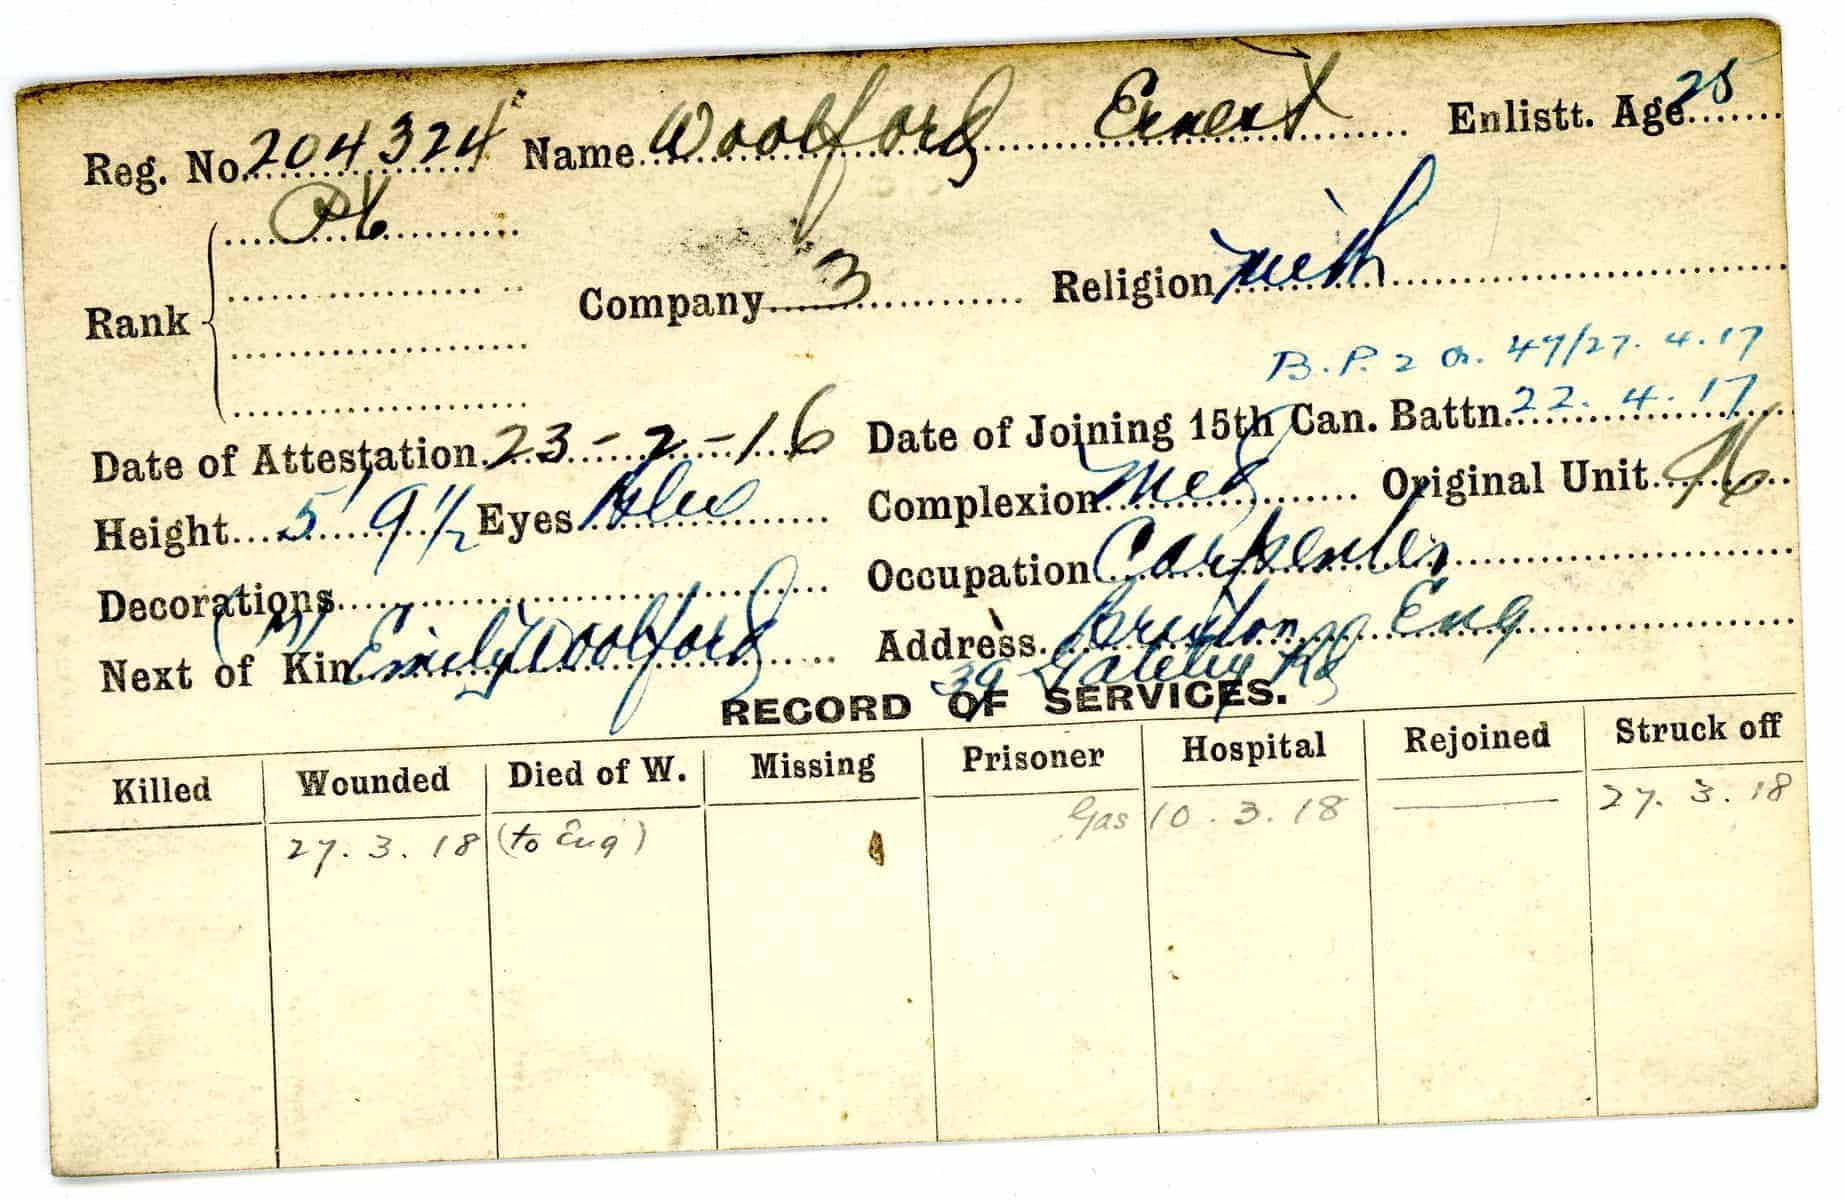 Reg. No. 204324 Name Woolford Ernest Enlistt. Age 25
Pte
Rank Company 3 Religion Meth
B.P. 2 Or. 47/27. 4. 17
Date of Attestation 23-2-16 Date of Joining 15th Can. Battn. 22. 4. 17
Height 5' 9½ Eyes Blue Complexion Med Original Unit 96
Decorations Occupation Carpenter
(M) Brixton Eng
Next of Kin Emily Woolford Address 39 Gateley Rd
RECORD OF SERVICES.
Killed Wounded Died of W. Missing Prisoner Hospital Rejoined Struck off
27. 3. 18 (to Eng) Gas 10. 3. 18 — 27. 3. 18